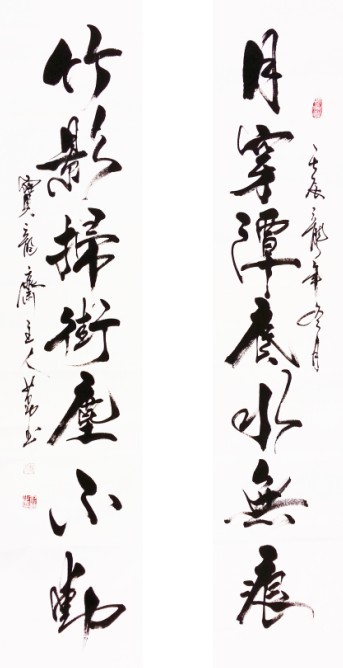 壬辰龍年冬月
月穿潭底水無痕
竹影掃街塵不動
寶龍齋主人勤书